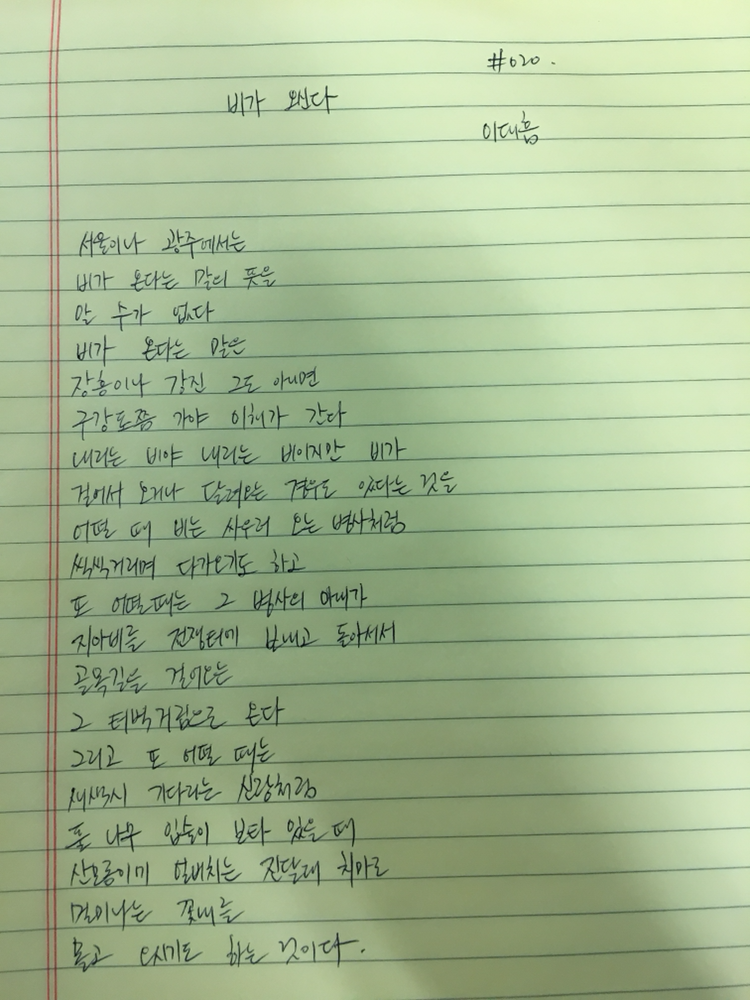 #020.
비가 오신다
이대흠
서울이나 광주에서는
비가 온다는 말의 뜻을
알 수가 없다
비가 온다는 말은
장흥이나 강진 그도 아니면
구강포쯤 가야 이해가 간다
내리는 비야 내리는 비이지만 비가
걸어서 오거나 달려오는 경우도 있다는 것을
어떨 때 비는 싸우러 오는 병사처럼
씩씩거리며 다가오기도 하고
또 어떨 때는 그 병사의 아내가
지아비를 전쟁터에 보내고 돌아서서
골목길을 걸어오는
그 터벅거림으로 온다
그리고 또 어떨 때는
새색시 기다리는 신랑처럼
풀 나무 입술이 보타 있을 때
산모롱이에 얼비치는 진달래 치마로
멀미나는 꽃내를
몰고 오시기도 하는 것이다.